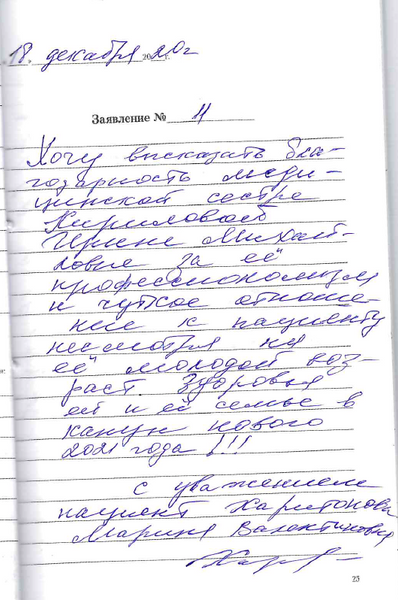 18. декабря 2020г
Заявление № 11
Хочу высказать бла-
годарность меди-
цинской сестре
Кириловой
Ирине Михай-
ловне за её
профессионализм
и чуткое отноше-
ние к пациенту
несмотря на
её молодой воз-
раст. Здоровья
ей и её семье в
канун нового
2021 года!!!
с уважением
пациент Харитонова
Марина Валентиновна
23